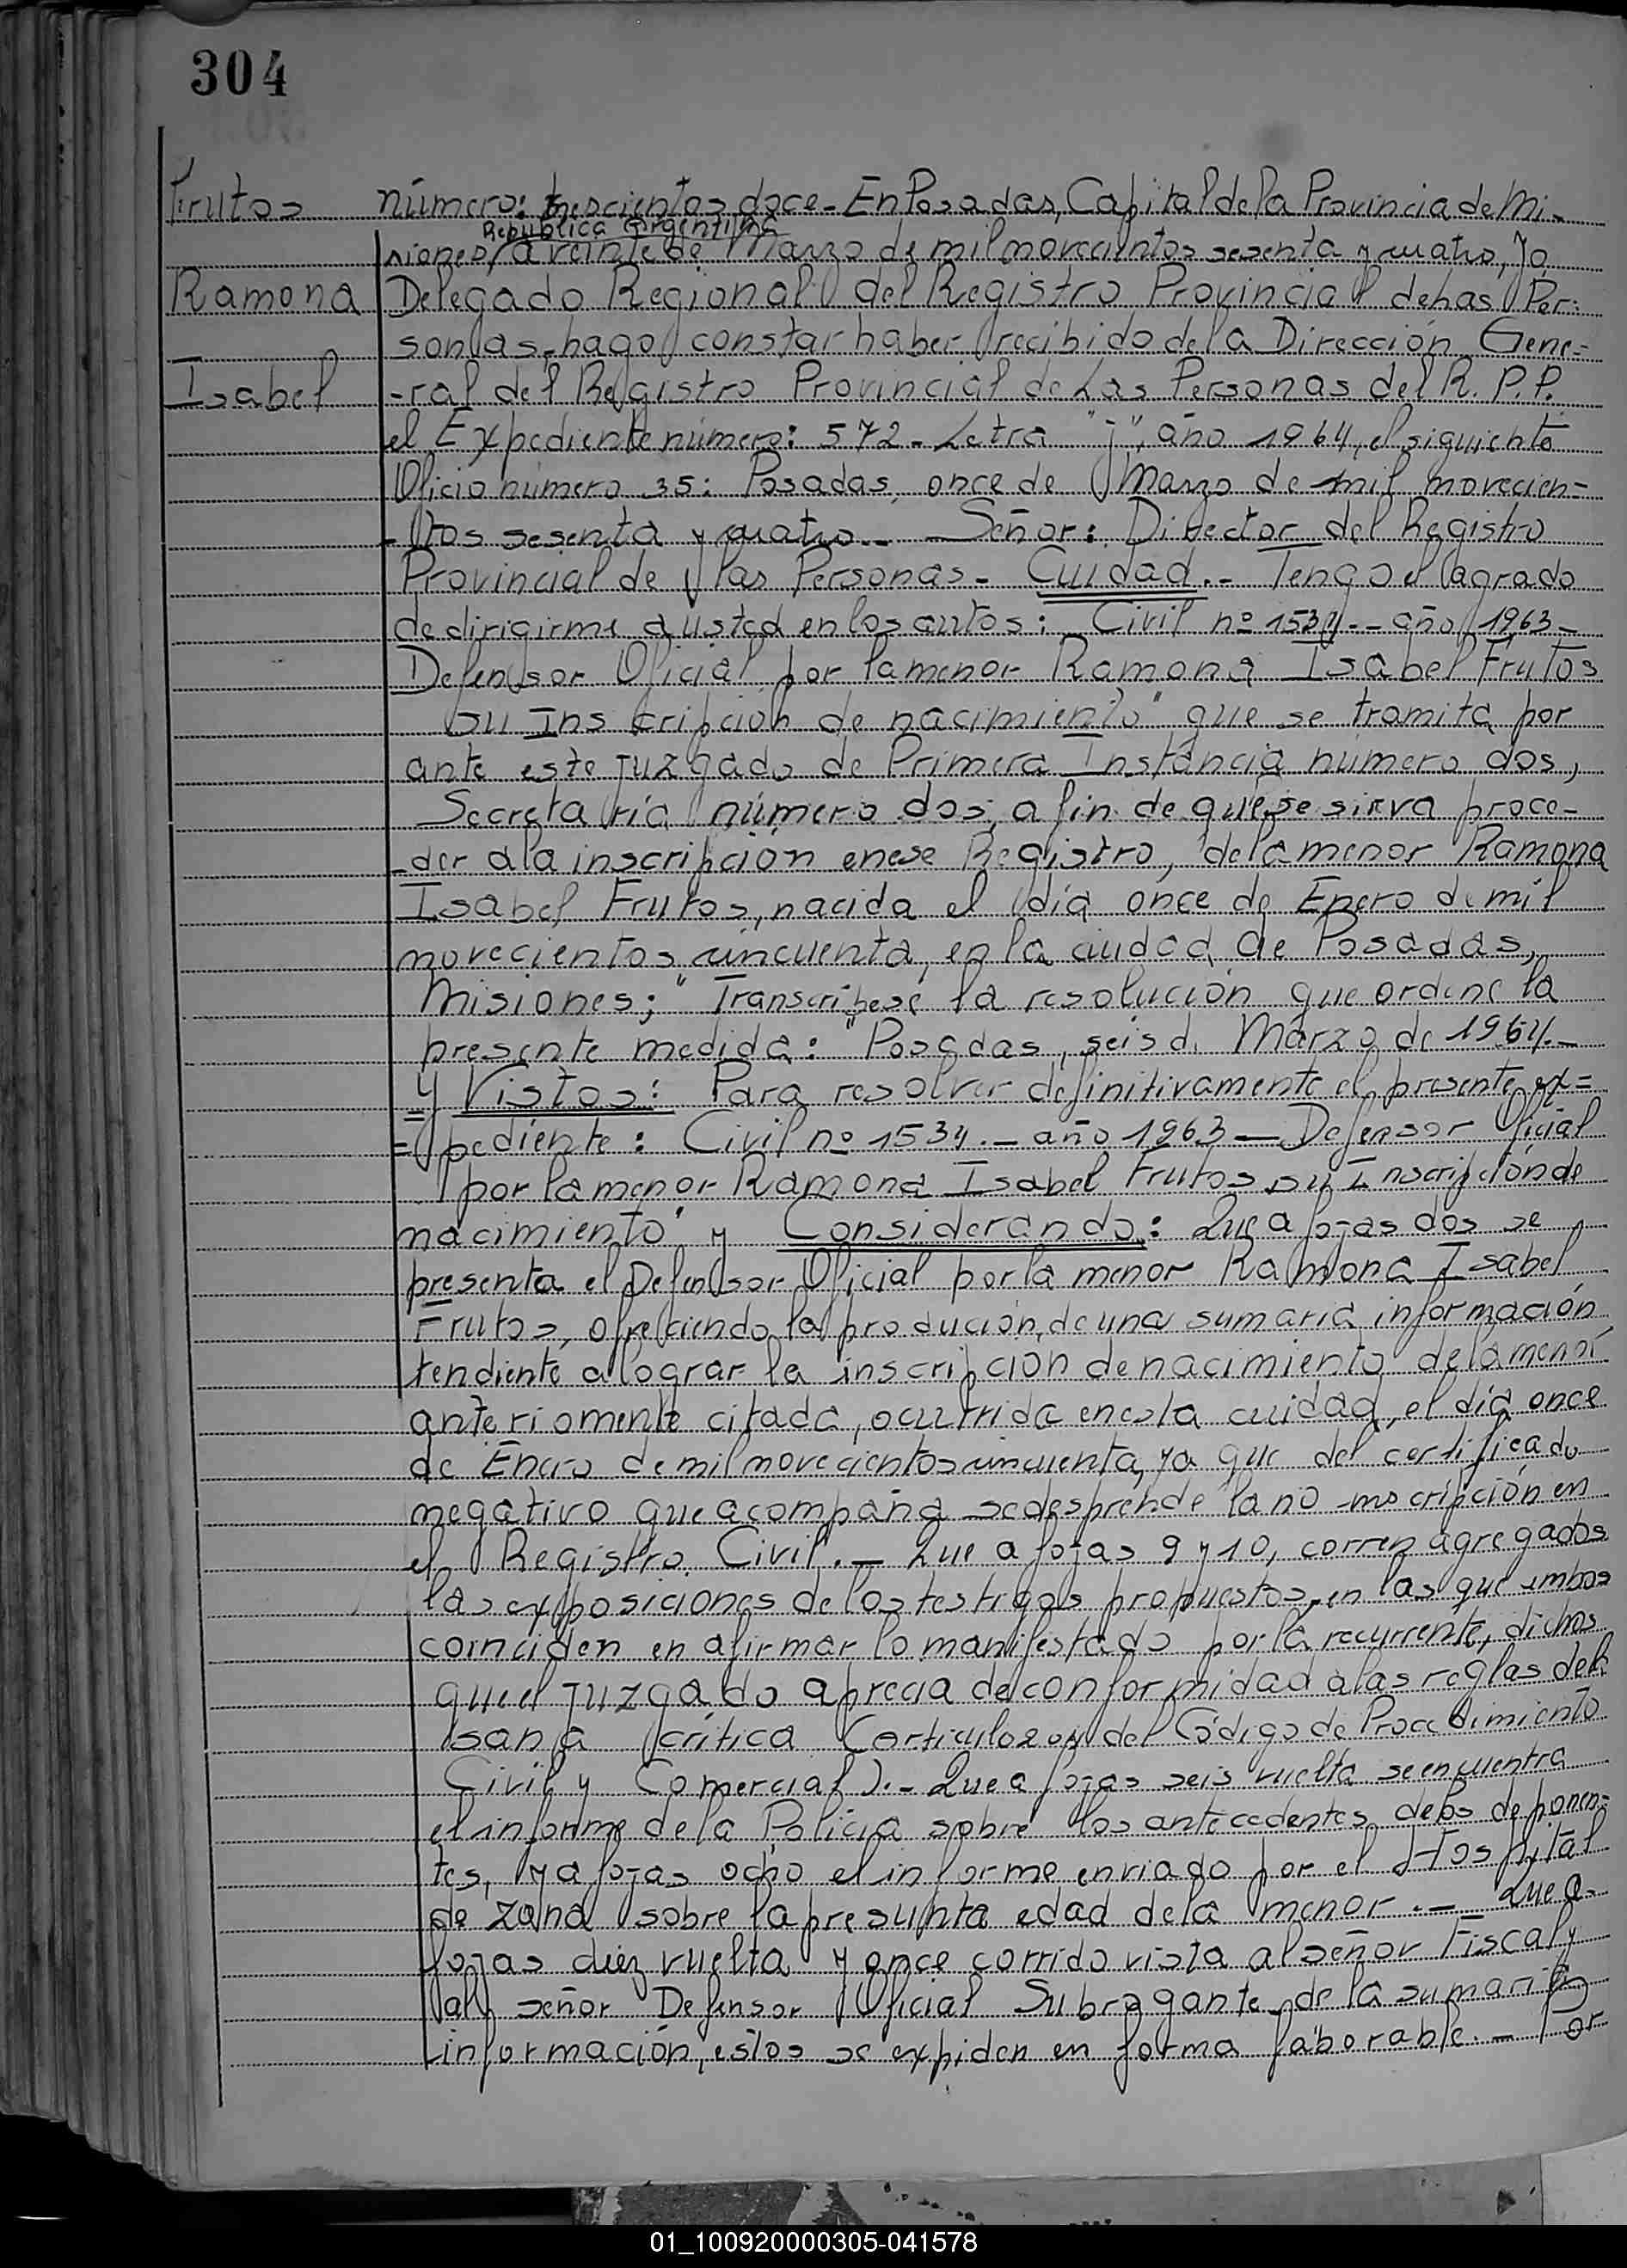 304
Frutos
Ramona
Isabel
número: trescientos doce.- En Posadas, Capital de la Provincia de Mi-
República Argentina
siones, a veinte de Marzo de mil novecientos sesenta y cuatro, yo
Delegado Regional del Registro Provincial de las Per-
sonas, hago constar haber recibido de la Dirección Gene-
-ral del Registro Provincial de Las Personas del R.P.P.
el Expediente número: 572- Letra "j", año 1964, el siguiente
Oficio número 35: Posadas, once de Marzo de mil novecien-
-tos sesenta y cuatro.- Señor: Director del Registro
Provincial de las Personas- Cuidad.- Tengo el agrado
de dirigirme a usted en los autos: Civil nº 1534-- año 1963-
Defensor Oficial por la menor Ramona Isabel Frutos
su Inscripción de nacimiento" que se tramita por
ante este juzgado de Primera Instancia número dos,
Secretaría número dos, a fin de que se sirva proce-
-der a la inscripción en ese Registro, de la menor Ramona
Isabel Frutos, nacida el día once de Enero de mil
novecientos cincuenta, en la ciudad de Posadas,
Misiones; "Transcribese la resolución que ordene la
presente medida: "Posadas, seis d. Marzo de 1964.-
=Y Vistos: Para resolver definitivamente el presente ex=
=pediente: Civil nº 1534.- año 1963- Defensor Oficial
por la menor Ramona Isabel Frutos su Inscripción de
nacimiento" y Considerando: Que a fojas dos se
presenta el Defensor Oficial por la menor Ramona Isabel
Frutos, ofreciendo la produción de una sumaria información
tendiente a lograr la inscripción de nacimiento de la menor
anteriomente citada, ocurrida en esta cuidad, el día once
de Enero de mil novecientos cincuenta, ya que del certificado
negativo que acompaña se desprende la no inscripción en
el Registro Civil.- Que a fojas 9 y 10, corren agregados
las exposiciones de los testigos propuestos, en las que ambos
coinciden en afirmar lo manifestado por la recurrente, dichos
que el juzgado aprecia de conformidad a las reglas de la
sana crítica (articulo 204 del Código de Procedimiento
Civil y Comercial).- Que a fojas seis vuelta se encuentra
el informe de la Policía sobre los antecedentes de los deponen-
tes, y a fojas ocho el informe enviado por el Hospital
de zona sobre la presunta edad de la menor.- Que a
fojas diez vuelta y once corrido vista al señor Fiscal y
al señor Defensor Oficial Subrogante de la sumaria
información, estos se expiden en forma faborable.- Por
01_100920000305-041578